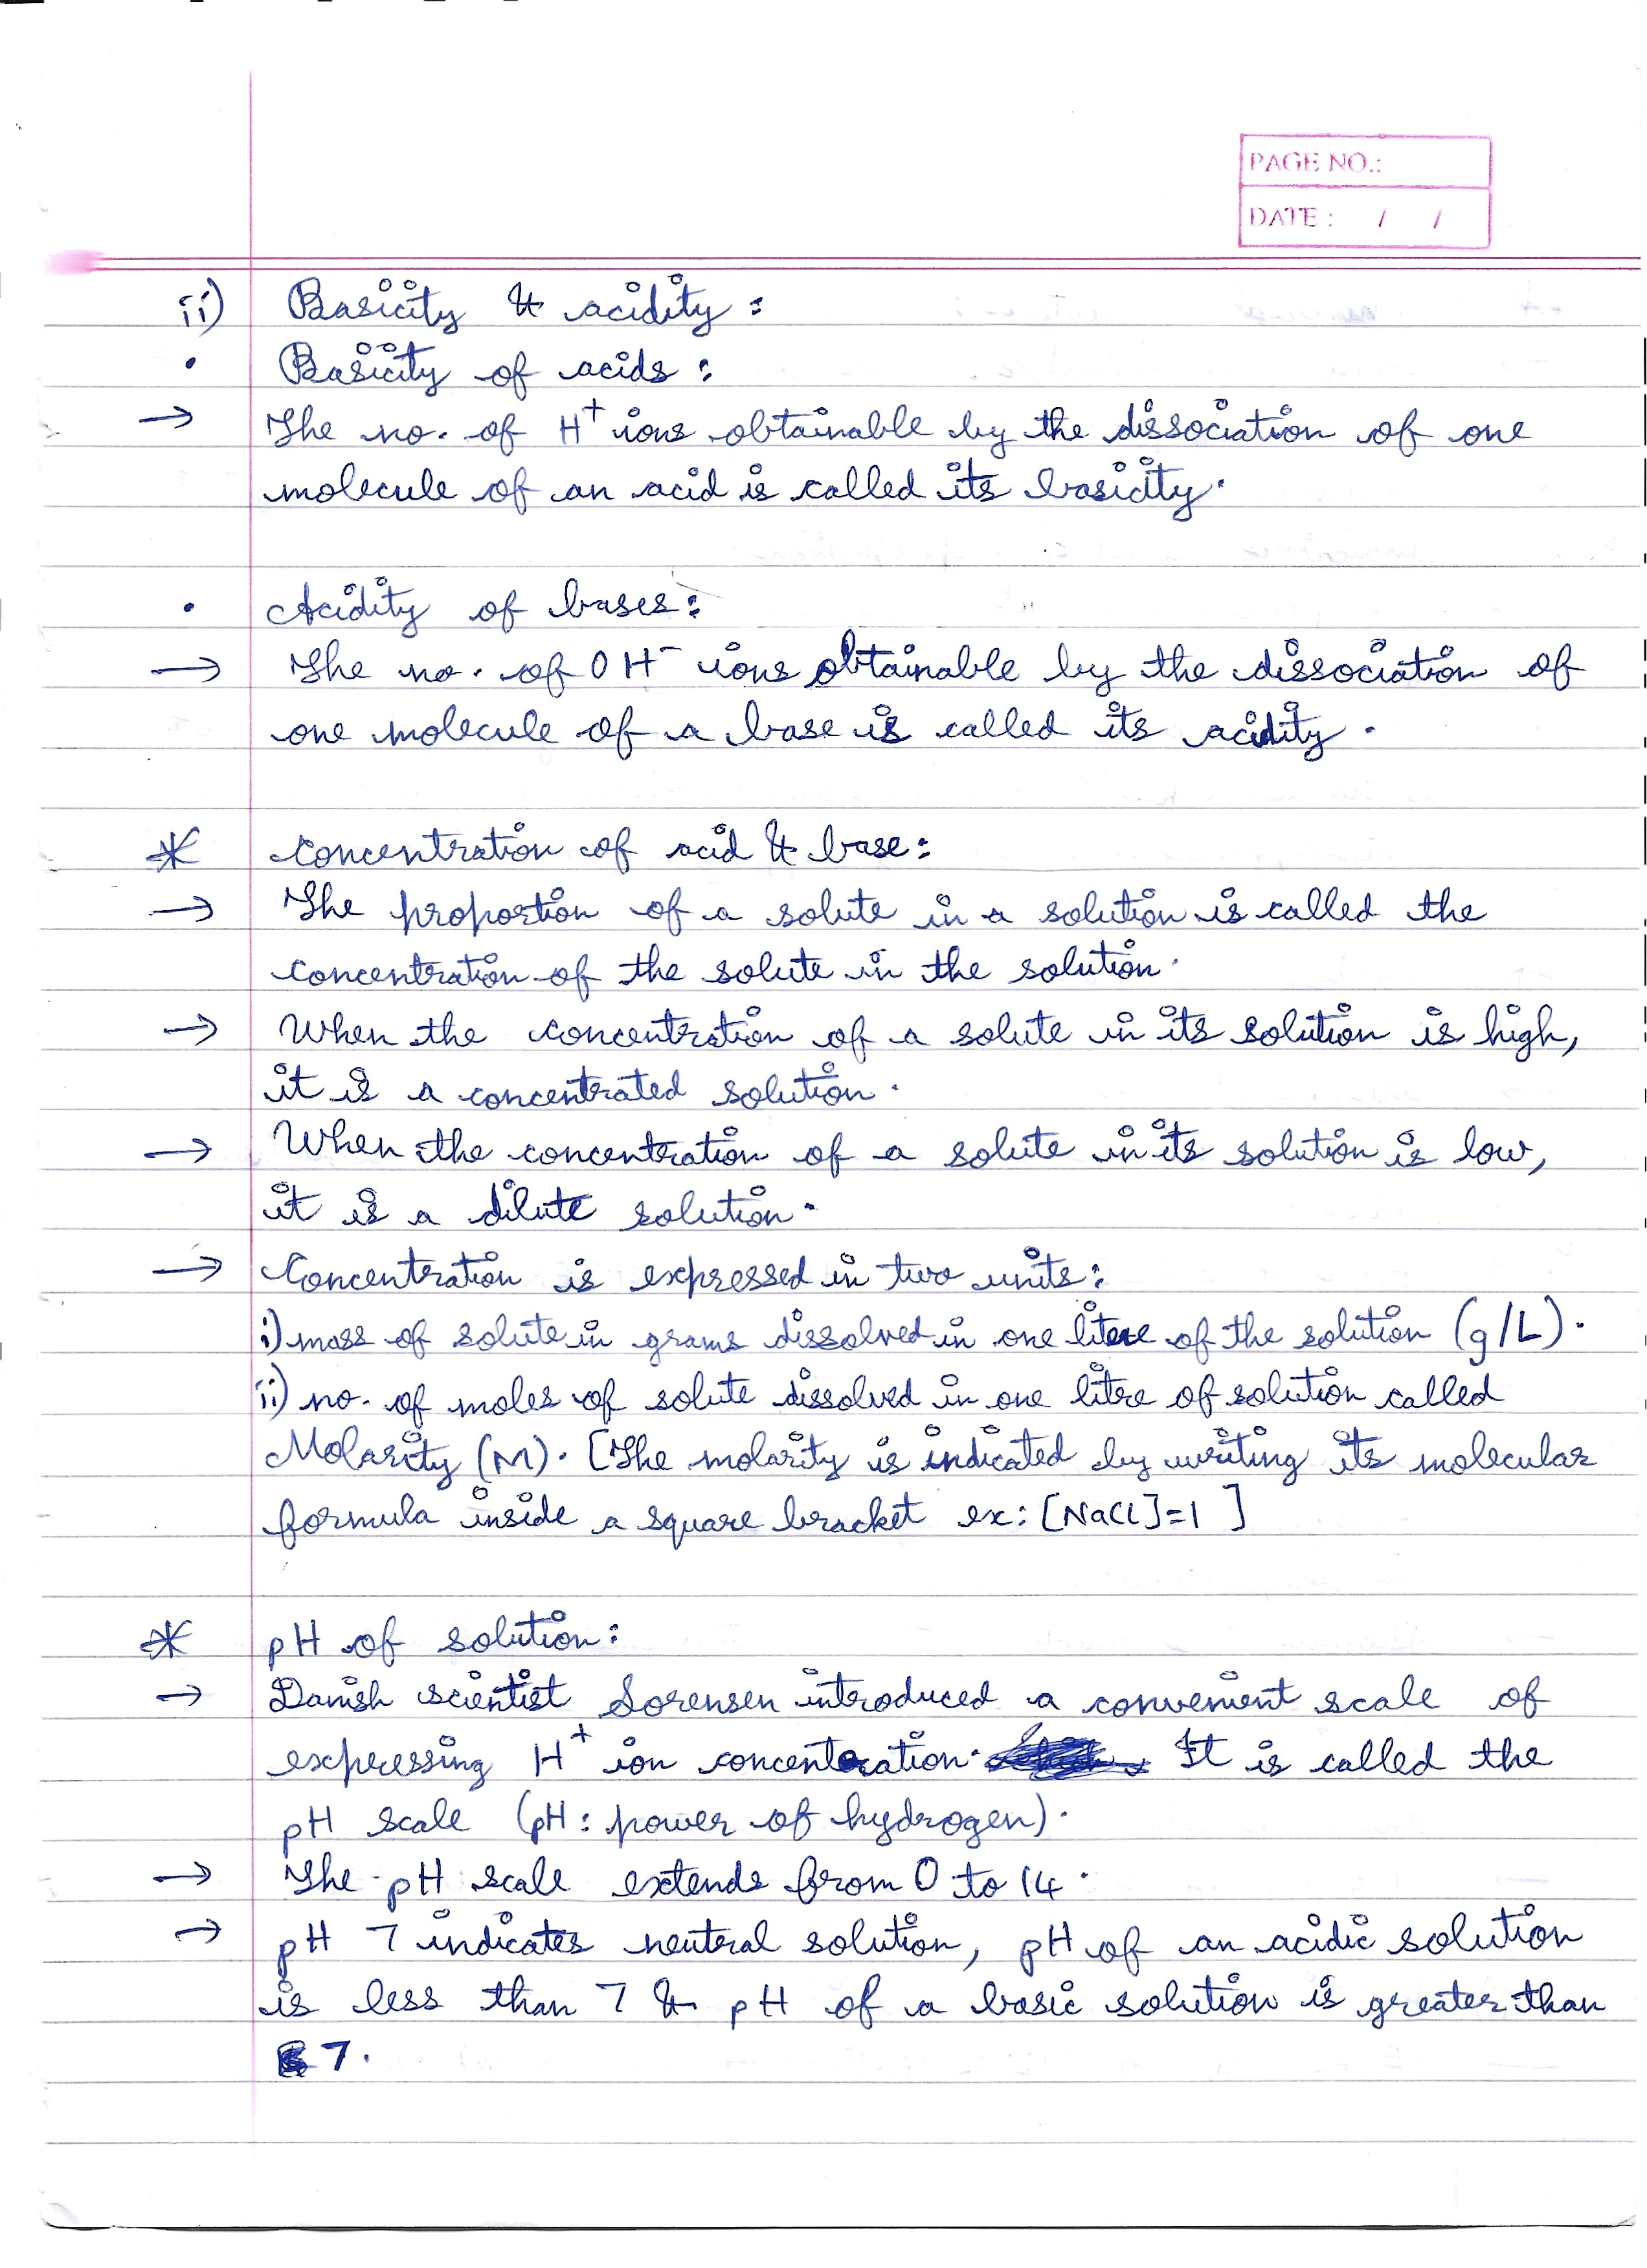 PAGE NO.:
DATE : / /
ii) Basicity & acidity :
• Basicity of acids :
→ The no. of H⁺ ions obtainable by the dissociation of one
molecule of an acid is called its basicity.
• Acidity of bases :
→ The no. of OH⁻ ions obtainable by the dissociation of
one molecule of a base is called its acidity.
* Concentration of acid & base :
→ The proportion of a solute in a solution is called the
concentration of the solute in the solution.
→ When the concentration of a solute in its solution is high,
it is a concentrated solution.
→ When the concentration of a solute in its solution is low,
it is a dilute solution.
→ Concentration is expressed in two units :
i) mass of solute in grams dissolved in one litre of the solution (g/L).
ii) no. of moles of solute dissolved in one litre of solution called
Molarity (M). [The molarity is indicated by writing its molecular
formula inside a square bracket ex: [NaCl]=1 ]
* pH of solution :
→ Danish scientist Sorensen introduced a convenient scale of
expressing H⁺ ion concentration. It is called the
pH scale (pH : power of hydrogen).
→ The pH scale extends from 0 to 14.
→ pH 7 indicates neutral solution, pH of an acidic solution
is less than 7 & pH of a basic solution is greater than
7.